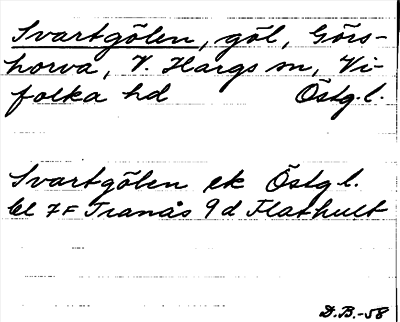 Svartgölen, göl, Görs-
horva, V. Hargs sn, Vi-
folka hd Östg.l.
Svartgölen ek Östgl.
bl 7F Tranås 9d Flathult
D.B.-58